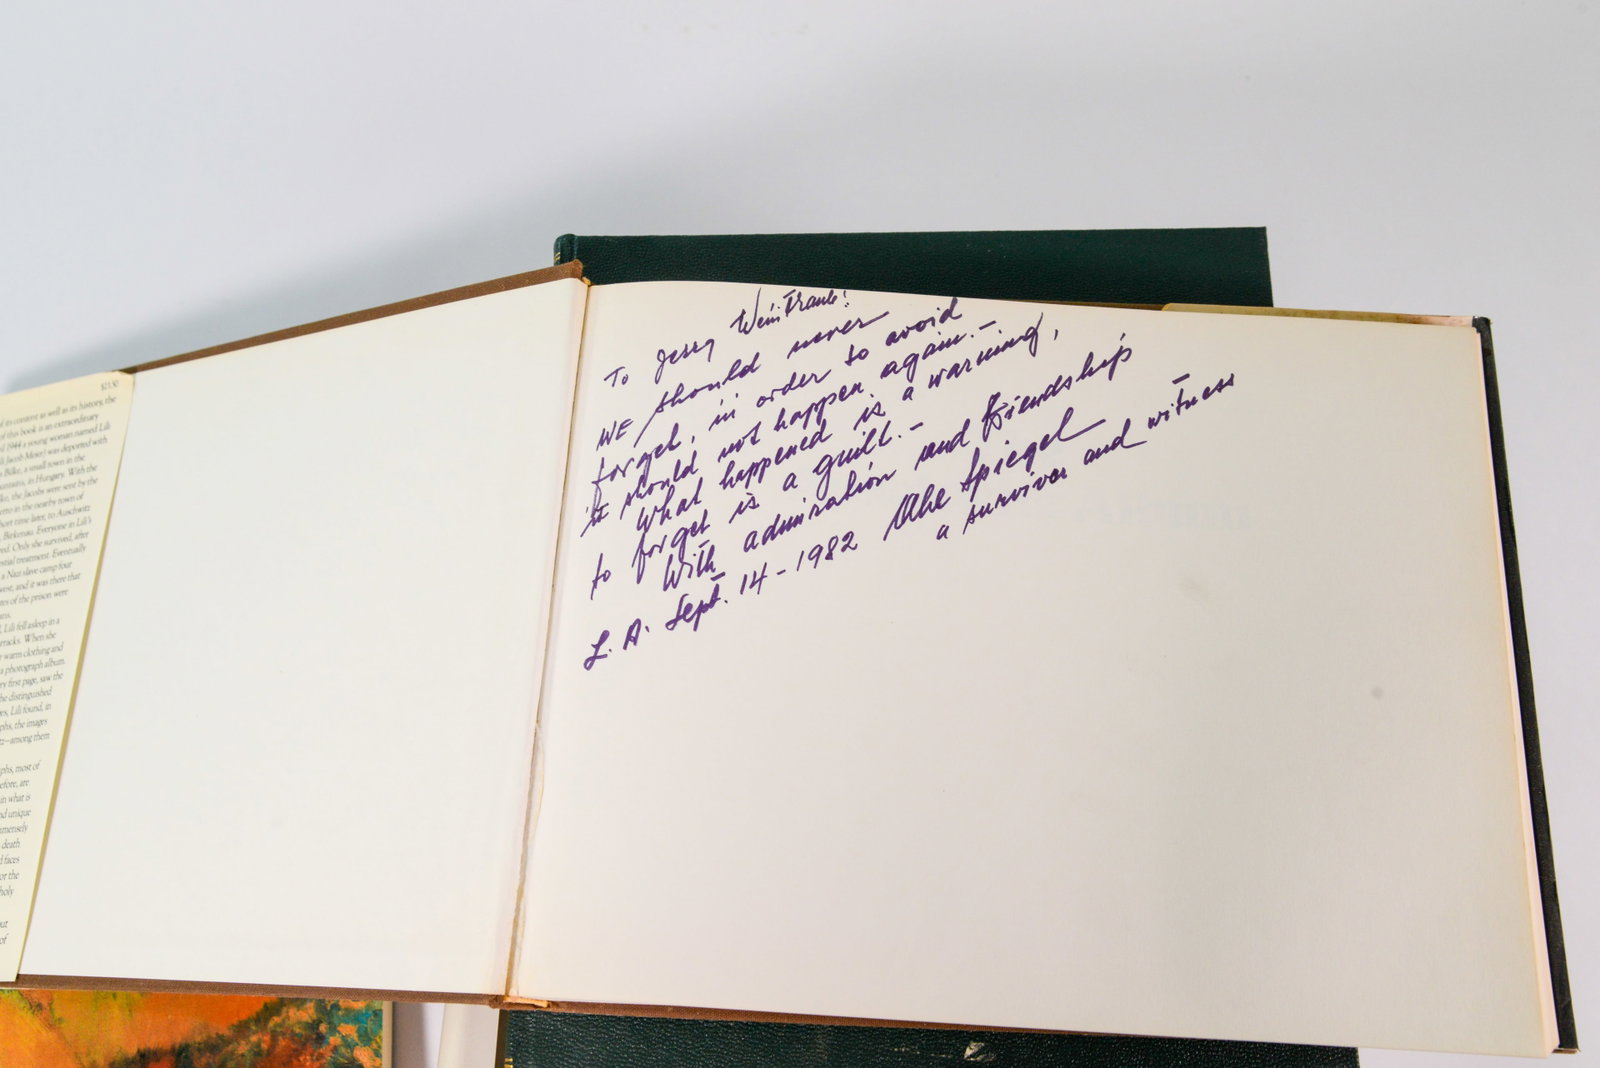 $23.50
of its content as well as its history, the
of this book is an extraordinary
1944 a young woman named Lili
Jacob Meier) was deported with
Bilke, a small town in the
ountains, in Hungary. With the
ke, the Jacobs were sent by the
etto in the nearby town of
hort time later, to Auschwitz
Birkenau. Everyone in Lili's
red. Only she survived, after
ential treatment. Eventually
a Nazi slave camp four
west, and it was there that
tes of the prison were
ans.
Lili fell asleep in a
rracks. When she
warm clothing and
a photograph album.
ry first page, saw the
he distinguished
es, Lili found, in
phs, the images
tz—among them
phs, most of
efore, are
in what is
nd unique
mmensely
death
d faces
or the
holy
out
of
To Jerry Weintraub!
WE should never
forget, in order to avoid
it should not happen again.—
What happened is a warning,
to forget is a guilt.—
With admiration and friendship
L.A. Sept. 14-1982 Abe Spiegel
a survivor and witness